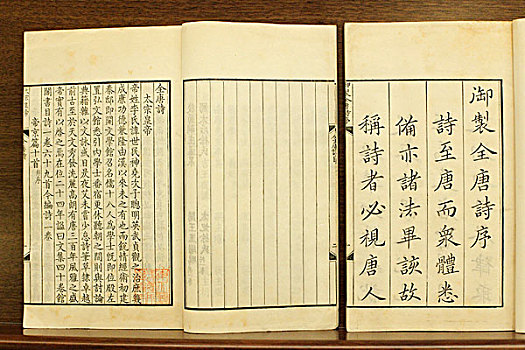 御製全唐詩序
詩至唐而衆體悉
備亦諸法畢該故
稱詩者必視唐人
全唐詩
太宗皇帝
帝姓李氏諱世民神堯次子聰明英武貞觀之治庶幾
成康功德兼隆由漢以來未之有也而銳情經術初建
秦邸即開文學館召名儒十八人為學士既即位殿左
置弘文館悉引內學士番宿更休聽朝之間則與討論
典籍雜以文詠或日昃夜艾未嘗少怠詩筆草隸卓越
前古至於天文秀發沈麗高朗有唐三百年風雅之盛
帝實有以啟之焉在位二十四年諡曰文集四十卷館
閣書目詩一卷六十九首今編詩一卷
帝京篇十首并序